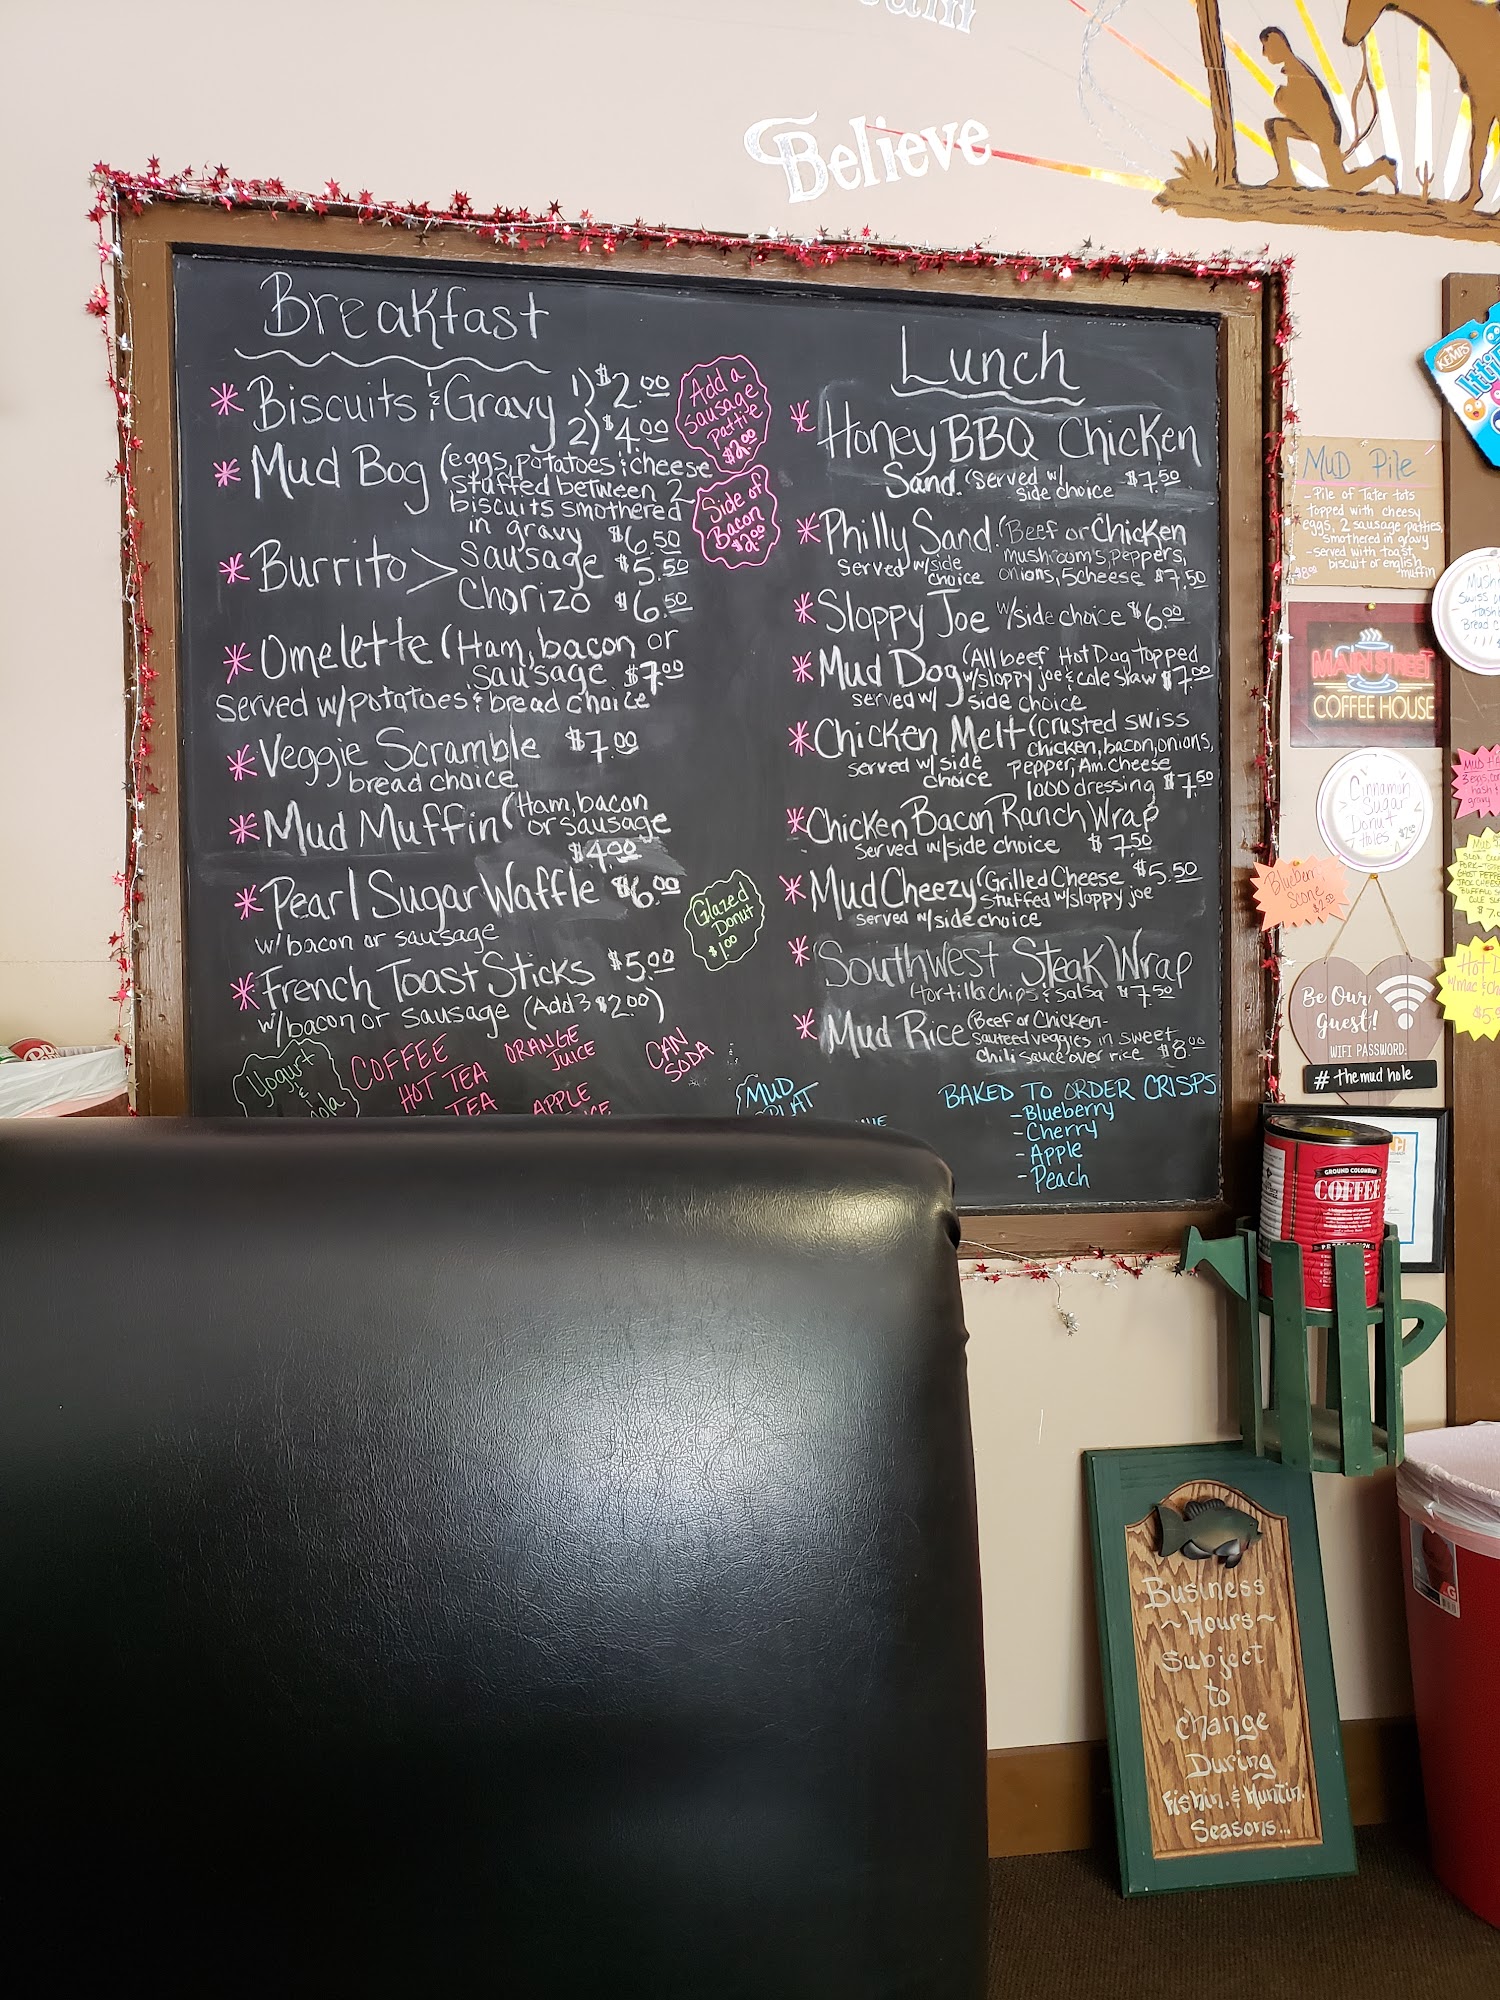 Believe
Breakfast
* Biscuits & Gravy 1) $2.00
2) $4.00
Add a
sausage
pattie
$2.00
* Mud Bog (eggs, potatoes & cheese
stuffed between 2
biscuits smothered
in gravy $6.50
Side of
Bacon
$2.00
* Burrito > Sausage $5.50
Chorizo $6.50
* Omelette (Ham, bacon or
sausage $7.00
served w/potatoes & bread choice
* Veggie Scramble $7.00
bread choice
* Mud Muffin (Ham, bacon
or sausage
$4.00
* Pearl Sugar Waffle $6.00
w/bacon or sausage
Glazed
Donut
$1.00
* French Toast Sticks $5.00
w/bacon or sausage (Add 3 $2.00)
Yogurt
&
COFFEE
HOT TEA
TEA
ORANGE
JUICE
APPLE
CAN
SODA
MUD
Lunch
* Honey BBQ Chicken
Sand. (Served w/
side choice $7.50
* Philly Sand. (Beef or Chicken
served w/side mushrooms, peppers,
choice onions, 5cheese $7.50
* Sloppy Joe w/side choice $6.00
* Mud Dog (All beef Hot Dog topped
w/sloppy joe & cole slaw $7.00
served w/ side choice
* Chicken Melt (Crusted swiss
chicken, bacon, onions,
served w/ side pepper, Am. cheese
choice 1000 dressing $7.50
* Chicken Bacon Ranch Wrap
served w/side choice $7.50
* Mud Cheezy (Grilled Cheese $5.50
stuffed w/sloppy joe
served w/side choice
* Southwest Steak Wrap
(tortilla chips & salsa $7.50
* Mud Rice (Beef or Chicken-
sauteed veggies in sweet
chili sauce over rice $8.00
BAKED TO ORDER CRISPS
- Blueberry
- Cherry
- Apple
- Peach
KEMPS
MUD PILE
- Pile of Tater tots
topped with cheesy
eggs, 2 sausage patties,
smothered in gravy
- served with toast,
biscuit or english
muffin
MAIN STREET
COFFEE HOUSE
Cinnamon
Sugar
Donut
Holes $2.00
Blueberry
Scone
Be Our
Guest!
WIFI PASSWORD:
# the mud hole
GROUND COLOMBIAN
COFFEE
Business
~Hours~
Subject
to
Change
During
Fishin. & Huntin.
Seasons...